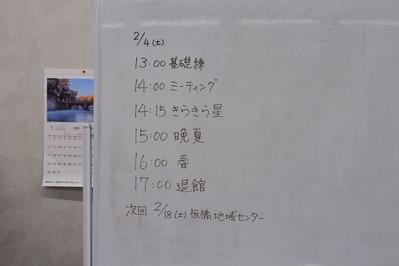 2/4(土)
13:00 基礎練
14:00 ミーティング
14:15 きらきら星
15:00 晩夏
16:00 春
17:00 退館
次回 2/18(土) 板橋地域センター